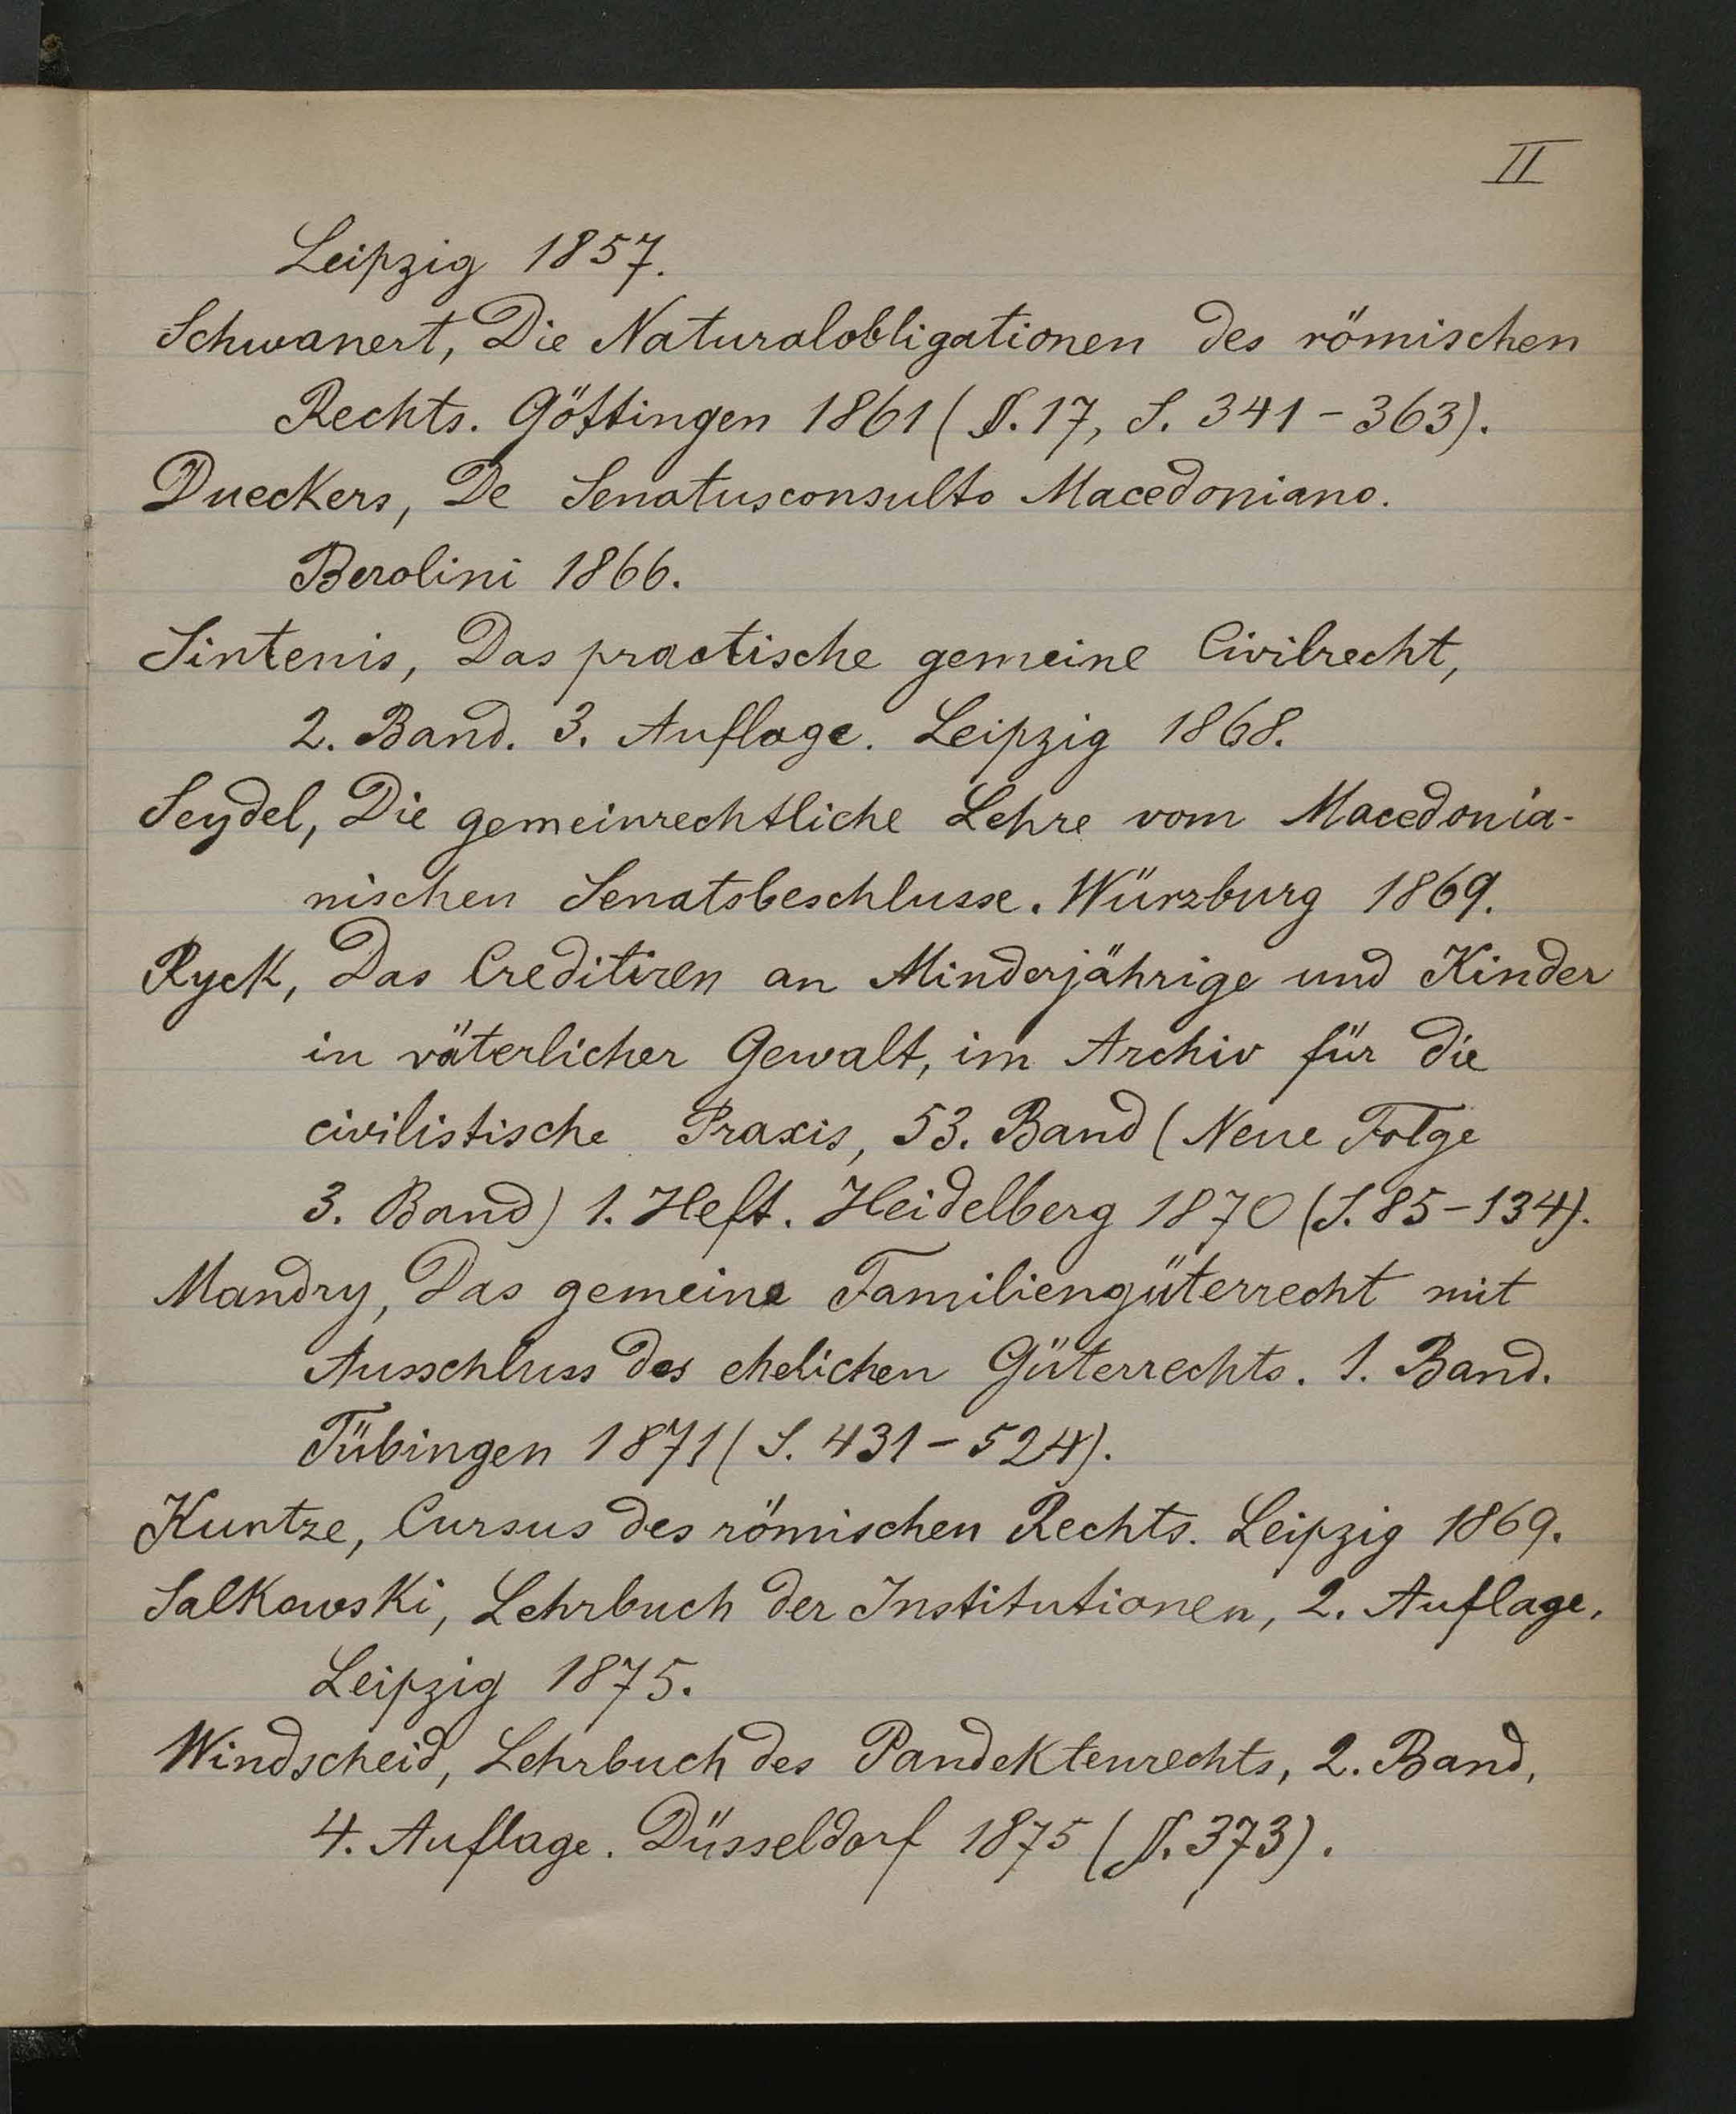 II
Leipzig 1857.
Schwanert, Die Naturalobligationen des römischen
Rechts. Göttingen 1861 (§. 17, S. 341 - 363).
Dueckers, De Senatusconsulto Macedoniano.
Berolini 1866.
Sintenis, Das practische gemeine Civilrecht,
2. Band. 3. Auflage. Leipzig 1868.
Seydel, Die gemeinrechtliche Lehre vom Macedonia-
nischen Senatsbeschlusse. Würzburg 1869.
Ryck, Das Creditiren an Minderjährige und Kinder
in väterlicher Gewalt, im Archiv für die
civilistische Praxis, 53. Band (Neue Folge
3. Band) 1. Heft. Heidelberg 1870 (S. 85 - 134).
Mandry, Das gemeine Familiengüterrecht mit
Ausschluss des ehelichen Güterrechts. 1. Band.
Tübingen 1871 (S. 431 - 524).
Kuntze, Cursus des römischen Rechts. Leipzig 1869.
Salkowski, Lehrbuch der Institutionen, 2. Auflage.
Leipzig 1875.
Windscheid, Lehrbuch des Pandektenrechts, 2. Band,
4. Auflage. Düsseldorf 1875 (§. 373).